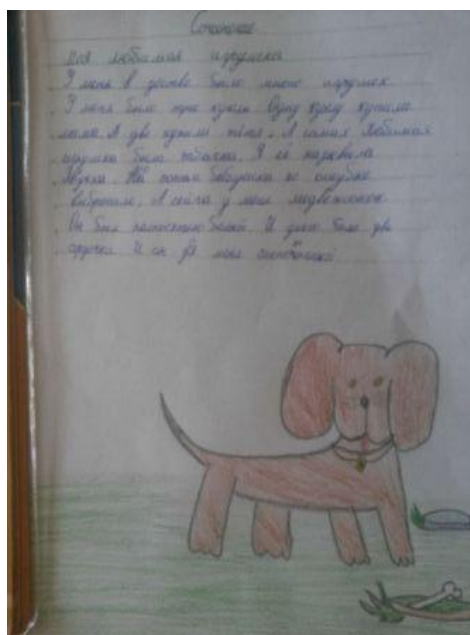 Сочинение
Моя любимая игрушка
У меня в детстве было много игрушек
У меня было три куклы Одну куклу купила
мама. А две купила тётя. А самая любимая
игрушка была собачка. Я её назвала
Но потом бабушка по ошибке
выбросила. А сейчас у меня медвежонок
Он был полностью белый. И было два
И он у меня